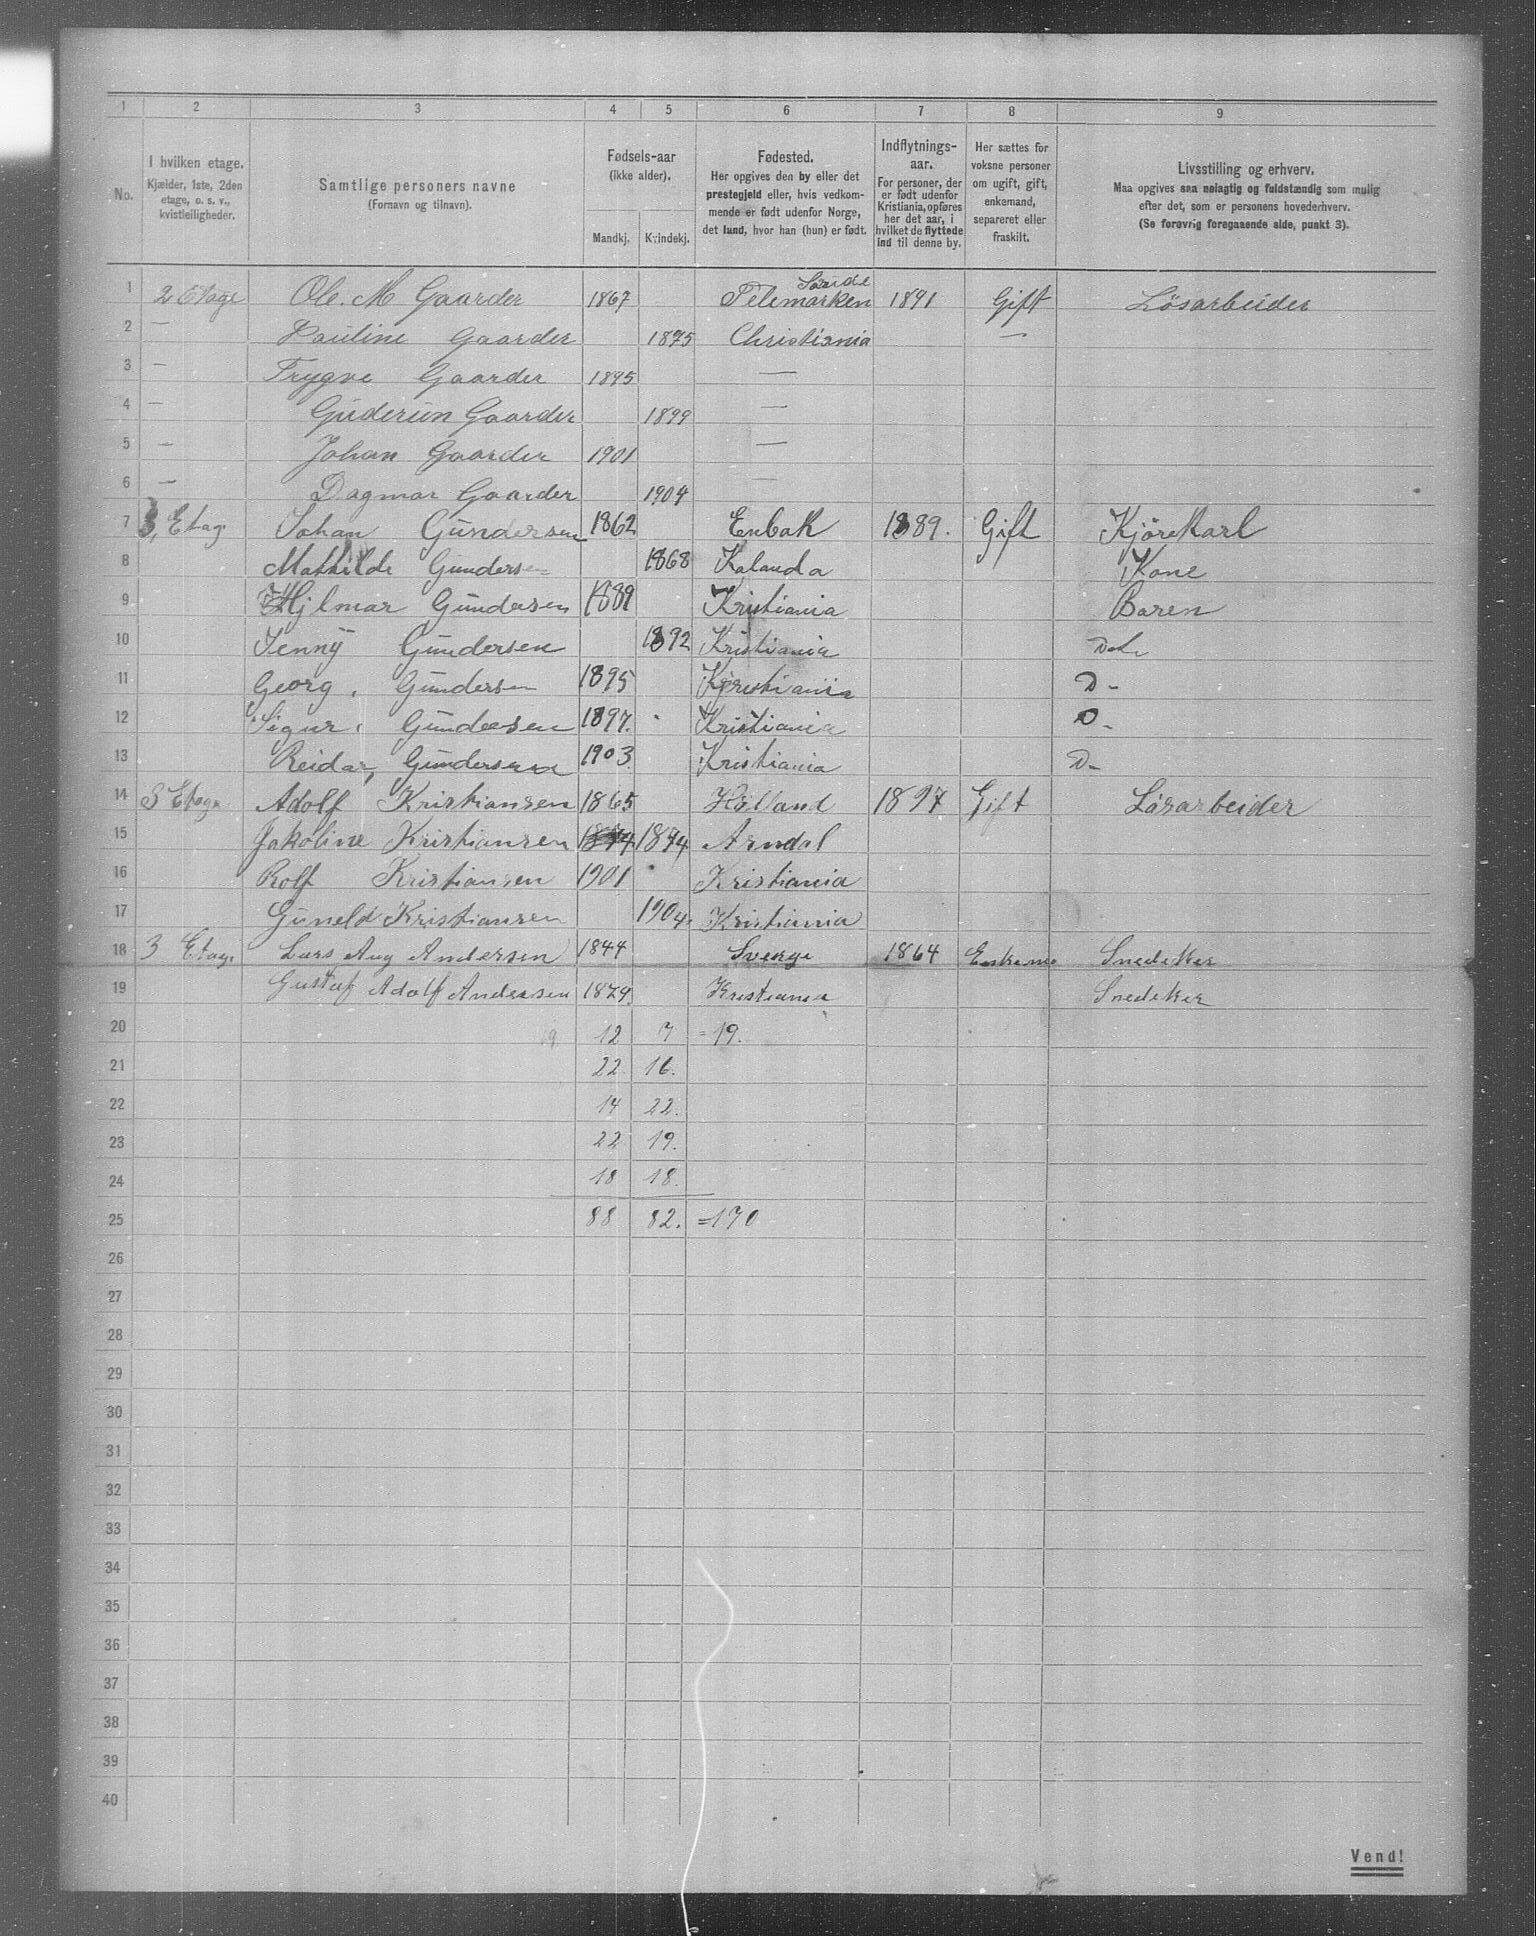 1 2 3 4 5 6 7 8 9
No.
I hvilken etage.
Kjælder, 1ste, 2den
etage, o. s. v.,
kvistleiligheder.
Samtlige personers navne
(Fornavn og tilnavn).
Fødsels-aar
(ikke alder).
Mandkj. Kvindekj.
Fødested.
Her opgives den by eller det
prestegjeld eller, hvis vedkom-
mende er født udenfor Norge,
det land, hvor han (hun) er født.
Indflytnings-
aar.
For personer, der
er født udenfor
Kristiania, opføres
her det aar, i
hvilket de flyttede
ind til denne by.
Her sættes for
voksne personer
om ugift, gift,
enkemand,
separeret eller
fraskilt.
Livsstilling og erhverv.
Maa opgives saa nøiagtig og fuldstændig som mulig
efter det, som er personens hovederhverv.
(Se forøvrig foregaaende side, punkt 3).
1 2 Etage Ole. M Gaarder 1867 Telemarken 1891 Gift Løsarbeider
2 — Pauline Gaarder 1875 Christiania —
3 — Trygve Gaarder 1895 —
4 — Guderun Gaarder 1899 —
5 — Johan Gaarder 1901 —
6 — Dagmar Gaarder 1904 —
7 3, Etag. Johan Gundersen 1862 Enbak 1889. Gift Kjørekarl
8 Mathilde Gundersen 1868 Kalanda Kone
9 Hjlmar Gundersen 1889 Kristiania Baren
10 Jenny Gundersen 1892 Kristiania
11 Georg. Gundersen 1895 Kristiania D-
12 Sigur. Gundersen 1897. Kristiania D-
13 Reidar, Gundersen 1903 Kristiania D-
14 3 Etage Adolf Kristiansen 1865 Holland 1897 Gift Løsarbeider
15 Jakoline Kristiansen 1874 1874 Arndal
16 Rolf Kristiansen 1901 Kristiania
17 Guneld Kristiansen 1904. Kristiania
18 3 Etag. Lars Aug Andersen 1844 Sverge 1864 Snedeker
19 Gustaf Adolf Andersen 1879. Kristiania Snedeker
20 19 12 7 = 19.
21 22 16.
22 14 22.
23 22 19.
24 18 18.
25 88 82. = 170
26
27
28
29
30
31
32
33
34
35
36
37
38
39
40
Vend!